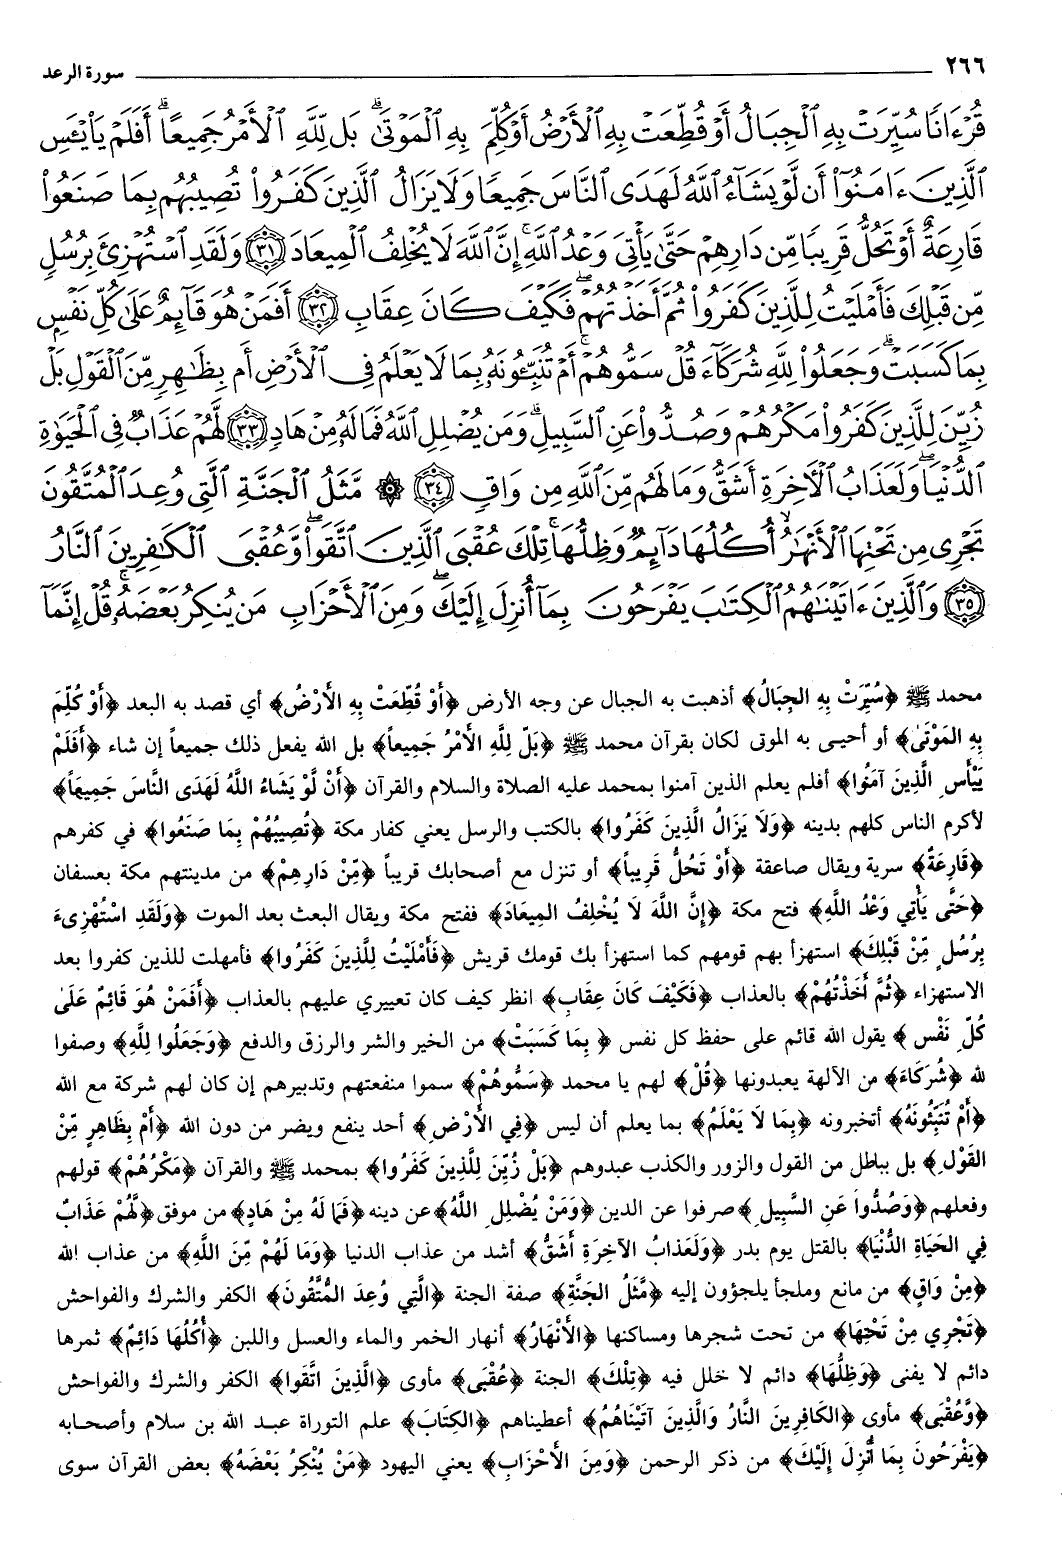 ٢٦٦ سورة الرعد
قُرْءَانًا سُيِّرَتْ بِهِ ٱلْجِبَالُ أَوْ قُطِّعَتْ بِهِ ٱلْأَرْضُ أَوْ كُلِّمَ بِهِ ٱلْمَوْتَىٰ ۗ بَل لِّلَّهِ ٱلْأَمْرُ جَمِيعًا ۗ أَفَلَمْ يَا۟يْـَٔسِ
ٱلَّذِينَ ءَامَنُوٓا۟ أَن لَّوْ يَشَآءُ ٱللَّهُ لَهَدَى ٱلنَّاسَ جَمِيعًا وَلَا يَزَالُ ٱلَّذِينَ كَفَرُوا۟ تُصِيبُهُم بِمَا صَنَعُوا۟
قَارِعَةٌ أَوْ تَحُلُّ قَرِيبًا مِّن دَارِهِمْ حَتَّىٰ يَأْتِىَ وَعْدُ ٱللَّهِ ۚ إِنَّ ٱللَّهَ لَا يُخْلِفُ ٱلْمِيعَادَ ٣١ وَلَقَدِ ٱسْتُهْزِئَ بِرُسُلٍ
مِّن قَبْلِكَ فَأَمْلَيْتُ لِلَّذِينَ كَفَرُوا۟ ثُمَّ أَخَذْتُهُمْ ۖ فَكَيْفَ كَانَ عِقَابِ ٣٢ أَفَمَنْ هُوَ قَآئِمٌ عَلَىٰ كُلِّ نَفْسٍ
بِمَا كَسَبَتْ ۗ وَجَعَلُوا۟ لِلَّهِ شُرَكَآءَ قُلْ سَمُّوهُمْ ۚ أَمْ تُنَبِّـُٔونَهُۥ بِمَا لَا يَعْلَمُ فِى ٱلْأَرْضِ أَم بِظَٰهِرٍ مِّنَ ٱلْقَوْلِ ۗ بَلْ
زُيِّنَ لِلَّذِينَ كَفَرُوا۟ مَكْرُهُمْ وَصُدُّوا۟ عَنِ ٱلسَّبِيلِ ۗ وَمَن يُضْلِلِ ٱللَّهُ فَمَا لَهُۥ مِنْ هَادٍ ٣٣ لَّهُمْ عَذَابٌ فِى ٱلْحَيَوٰةِ
ٱلدُّنْيَا ۖ وَلَعَذَابُ ٱلْأَخِرَةِ أَشَقُّ ۖ وَمَا لَهُم مِّنَ ٱللَّهِ مِن وَاقٍ ٣٤ ۞ مَّثَلُ ٱلْجَنَّةِ ٱلَّتِى وُعِدَ ٱلْمُتَّقُونَ
تَجْرِى مِن تَحْتِهَا ٱلْأَنْهَٰرُ ۖ أُكُلُهَا دَآئِمٌ وَظِلُّهَا ۚ تِلْكَ عُقْبَى ٱلَّذِينَ ٱتَّقَوا۟ ۖ وَّعُقْبَى ٱلْكَٰفِرِينَ ٱلنَّارُ
٣٥ وَٱلَّذِينَ ءَاتَيْنَٰهُمُ ٱلْكِتَٰبَ يَفْرَحُونَ بِمَآ أُنزِلَ إِلَيْكَ ۖ وَمِنَ ٱلْأَحْزَابِ مَن يُنكِرُ بَعْضَهُۥ ۚ قُلْ إِنَّمَآ
محمد ﷺ ﴿سُيِّرَتْ بِهِ الجِبَالُ﴾ أذهبت به الجبال عن وجه الأرض ﴿أَوْ قُطِّعَتْ بِهِ الأَرْضُ﴾ أي قصد به البعد ﴿أَوْ كُلِّمَ
بِهِ المَوْتَىٰ﴾ أو أحيـى به الموتى لكان بقرآن محمد ﷺ ﴿بَلْ لِلَّهِ الأَمْرُ جَمِيعاً﴾ بل الله يفعل ذلك جميعاً إن شاء ﴿أَفَلَمْ
يَيْأَسِ الَّذِينَ آمَنُوا﴾ أفلم يعلم الذين آمنوا بمحمد عليه الصلاة والسلام والقرآن ﴿أَنْ لَّوْ يَشَاءُ اللَّهُ لَهَدَى النَّاسَ جَمِيعَاً﴾
لأكرم الناس كلهم بدينه ﴿وَلَا يَزَالُ الَّذِينَ كَفَرُوا﴾ بالكتب والرسل يعني كفار مكة ﴿تُصِيبُهُمْ بِمَا صَنَعُوا﴾ في كفرهم
﴿قَارِعَةٌ﴾ سرية ويقال صاعقة ﴿أَوْ تَحُلُّ قَرِيباً﴾ أو تنزل مع أصحابك قريباً ﴿مِّنْ دَارِهِمْ﴾ من مدينتهم مكة بعسفان
﴿حَتَّى يَأْتِي وَعْدُ اللَّهِ﴾ فتح مكة ﴿إِنَّ اللَّهَ لَا يُخْلِفُ المِيعَادَ﴾ ففتح مكة ويقال البعث بعد الموت ﴿وَلَقَدِ اسْتُهْزِىءَ
بِرُسُلٍ مِّنْ قَبْلِكَ﴾ استهزأ بهم قومهم كما استهزأ بك قومك قريش ﴿فَأَمْلَيْتُ لِلَّذِينَ كَفَرُوا﴾ فأمهلت للذين كفروا بعد
الاستهزاء ﴿ثُمَّ أَخَذْتُهُمْ﴾ بالعذاب ﴿فَكَيْفَ كَانَ عِقَابِ﴾ انظر كيف كان تعييري عليهم بالعذاب ﴿أَفَمَنْ هُوَ قَائِمٌ عَلَىٰ
كُلِّ نَفْسٍ﴾ يقول الله قائم على حفظ كل نفس ﴿بِمَا كَسَبَتْ﴾ من الخير والشر والرزق والدفع ﴿وَجَعَلُوا لِلَّهِ﴾ وصفوا
لله ﴿شُرَكَاءَ﴾ من الآلهة يعبدونها ﴿قُلْ﴾ لهم يا محمد ﴿سَمُّوهُمْ﴾ سموا منفعتهم وتدبيرهم إن كان لهم شركة مع الله
﴿أَمْ تُنَبِّئُونَهُ﴾ أتخبرونه ﴿بِمَا لَا يَعْلَمُ﴾ بما يعلم أن ليس ﴿فِي الأَرْضِ﴾ أحد ينفع ويضر من دون الله ﴿أَمْ بِظَاهِرٍ مِّنْ
القَوْلِ﴾ بل بباطل من القول والزور والكذب عبدوهم ﴿بَلْ زُيِّنَ لِلَّذِينَ كَفَرُوا﴾ بمحمد ﷺ والقرآن ﴿مَكْرُهُمْ﴾ قولهم
وفعلهم ﴿وَصُدُّوا عَنِ السَّبِيلِ﴾ صرفوا عن الدين ﴿وَمَنْ يُضْلِلِ اللَّهُ﴾ عن دينه ﴿فَمَا لَهُ مِنْ هَادٍ﴾ من موفق ﴿لَّهُمْ عَذَابٌ
فِي الحَيَاةِ الدُّنْيَا﴾ بالقتل يوم بدر ﴿وَلَعَذَابُ الآخِرَةِ أَشَقُّ﴾ أشد من عذاب الدنيا ﴿وَمَا لَهُمْ مِّنَ اللَّهِ﴾ من عذاب الله
﴿مِنْ وَاقٍ﴾ من مانع وملجأ يلجؤون إليه ﴿مَّثَلُ الجَنَّةِ﴾ صفة الجنة ﴿الَّتِي وُعِدَ المُتَّقُونَ﴾ الكفر والشرك والفواحش
﴿تَجْرِي مِنْ تَحْتِهَا﴾ من تحت شجرها ومساكنها ﴿الأَنْهَارُ﴾ أنهار الخمر والماء والعسل واللبن ﴿أُكُلُهَا دَائِمٌ﴾ ثمرها
دائم لا يفنى ﴿وَظِلُّهَا﴾ دائم لا خلل فيه ﴿تِلْكَ﴾ الجنة ﴿عُقْبَى﴾ مأوى ﴿الَّذِينَ اتَّقَوا﴾ الكفر والشرك والفواحش
﴿وَّعُقْبَى﴾ مأوى ﴿الكَافِرِينَ النَّارُ وَالَّذِينَ آتَيْنَاهُمُ﴾ أعطيناهم ﴿الكِتَابَ﴾ علم التوراة عبد الله بن سلام وأصحابه
﴿يَفْرَحُونَ بِمَا أُنْزِلَ إِلَيْكَ﴾ من ذكر الرحمن ﴿وَمِنَ الأَحْزَابِ﴾ يعني اليهود ﴿مَنْ يُنْكِرُ بَعْضَهُ﴾ بعض القرآن سوى